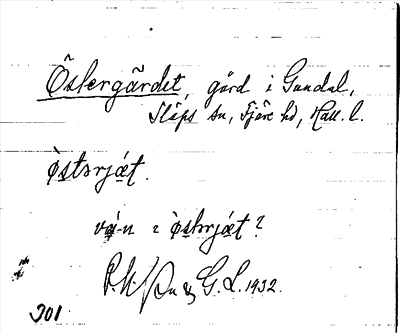 Östergärdet, gård i Gundal,
Släps sn, Fjäre hd, Hall. l.
ɷ̀stərjǽt.
vá-n ɪ ɷ̀stərjǽt?
G. L. 1932.
301